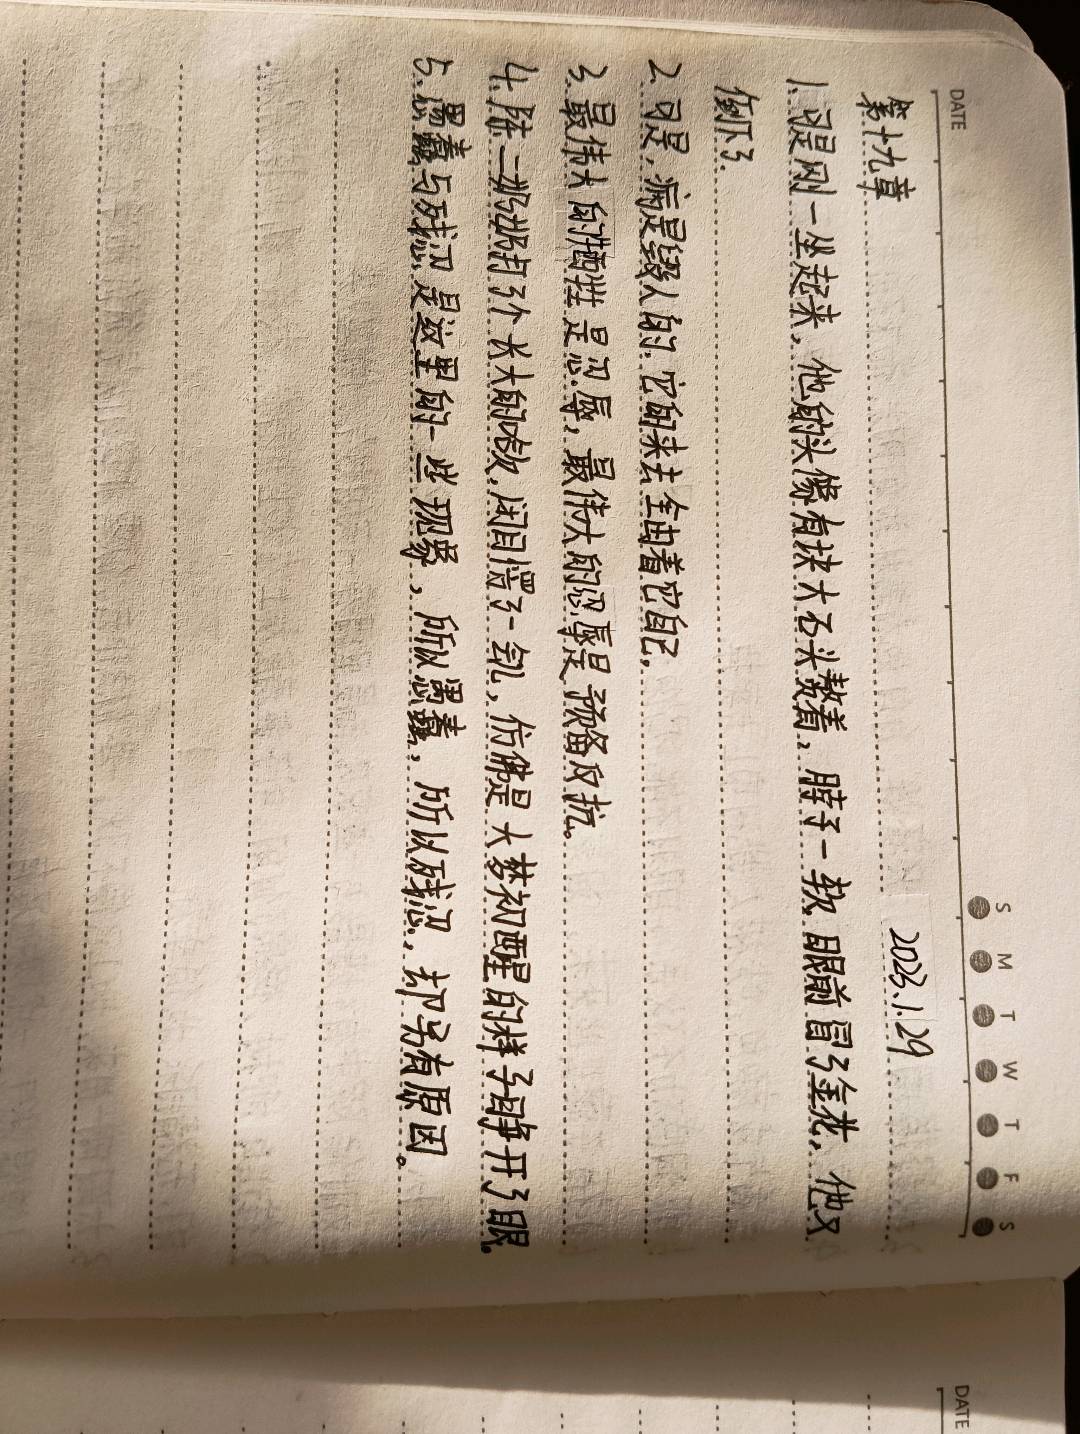 DATE
S M T W T F S
第十九章
2023.1.29
1.可是刚一坐起来,他的头像有块大石头赘着,脖子一软,眼前冒了金花,他又
倒下了.
2.可是,病是毁人的,它的来去全由着它自己,
3.最伟大的牺牲是忍辱,最伟大的忍辱是预备反抗。
4.陆二奶奶打了个长大的哈欠,闭目愣了一会儿,仿佛是大梦初醒的样子睁开了眼.
5.愚蠢与残忍是这里的一些现象,所以愚蠢,所以残忍,却另有原因。
DATE